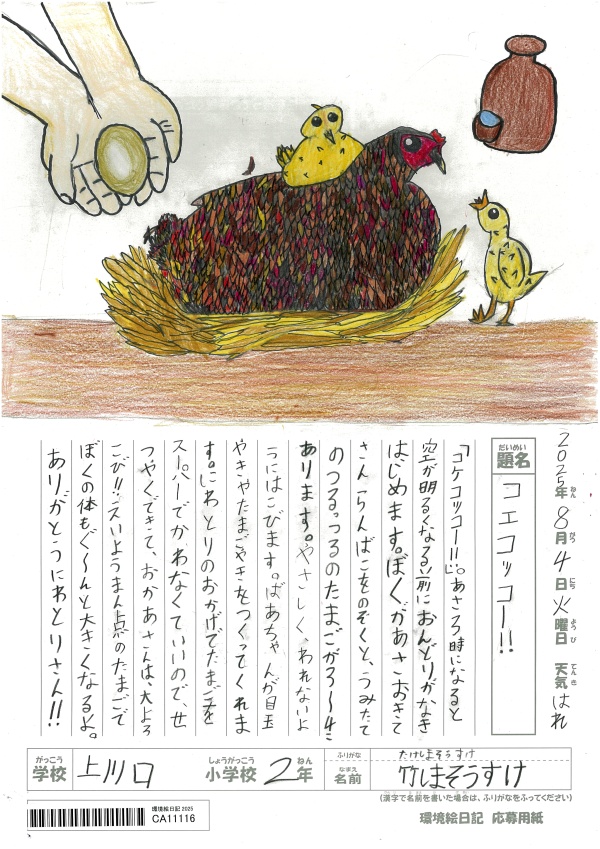 2025年8月4日火曜日 天気はれ
ねん がつ にち ようび てんき
だいめい
題名 コエコッコー!!
「コケコッコー!!」。あさ3時になると
空が明るくなる前におんどりがなき
はじめます。ぼくがあさおきて
さんらんばこをのぞくと、うみたて
のつるっつるのたまごが3〜4こ
あります。やさしく、われないよ
うにはこびます。ばあちゃんが目玉
やきやたまごやきをつくってくれま
す。にわとりのおかげでたまごを
スーパーでかわなくていいので、せ
つやくできて、おかあさんは、大よろ
こび!!えいようまん点のたまごで
ぼくの体もぐ〜んと大きくなるよ。
ありがとうにわとりさん!!
がっこう しょうがっこう ねん ふりがな たけしまそうすけ
学校 上川口 小学校 2年 なまえ 名前 竹しまそうすけ
(漢字で名前を書いた場合は、ふりがなをふってください)
環境絵日記 2025
CA11116
環境絵日記 応募用紙